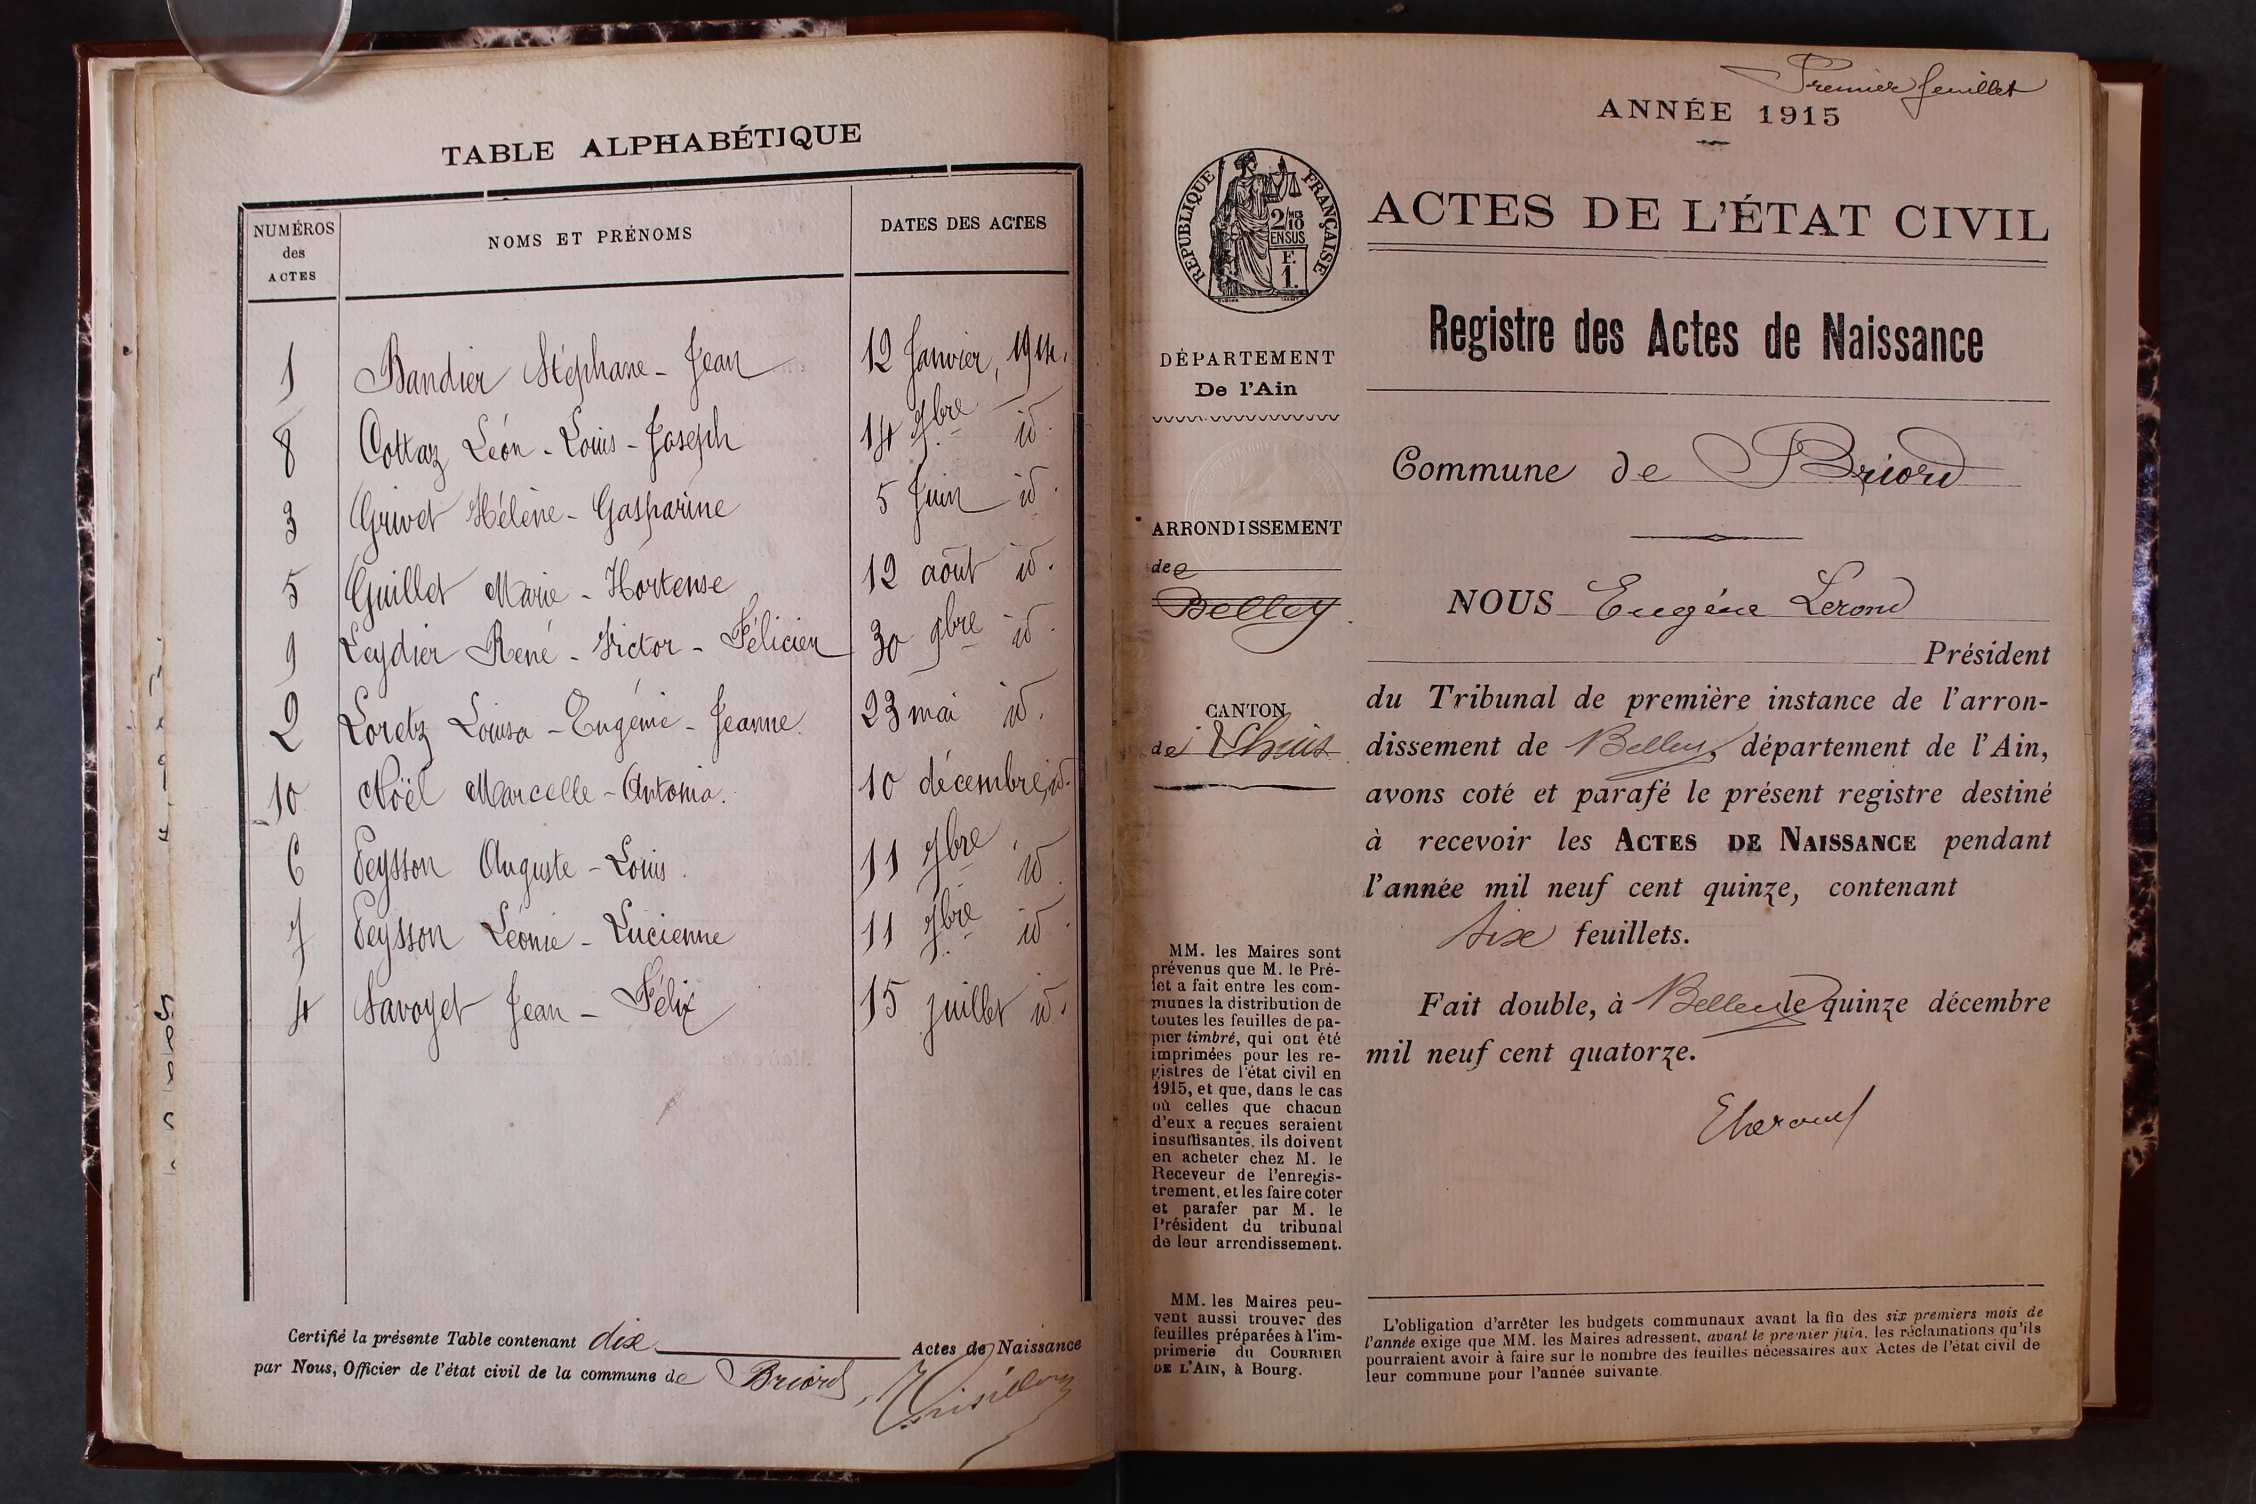 TABLE ALPHABÉTIQUE
NUMÉROS des ACTES
NOMS ET PRÉNOMS
DATES DES ACTES
1 Bandier Stéphane - Jean 12 Janvier, 1914.
8 Cottaz Léon - Louis - Joseph 14 9bre id.
3 Grivet Hélène - Gasparine 5 Juin id.
5 Guillet Marie - Hortense 12 août id.
9 Leydier René - Victor - Félicien 30 9bre id.
2 Loretz Louisa - Eugénie - Jeanne. 23 mai id.
10 Noël Marcelle - Antonia. 10 décembre id.
6 Peysson Auguste - Louis. 11 7bre id.
7 Peysson Léonie - Lucienne 11 7bre id.
4 Savoyet Jean - Félix 15 juillet id.
Certifié la présente Table contenant dix Actes de Naissance
par Nous, Officier de l'état civil de la commune de Briord
Premier feuillet
ANNÉE 1915
RÉPUBLIQUE FRANÇAISE
2/10 MES
EN SUS
F.
1.
ACTES DE L'ÉTAT CIVIL
Registre des Actes de Naissance
DÉPARTEMENT
De l'Ain
Commune de Briord
ARRONDISSEMENT
de
Belley
CANTON
de Lhuis
NOUS Eugène Lerond
Président
du Tribunal de première instance de l'arron-
dissement de Belley, département de l'Ain,
avons coté et parafé le présent registre destiné
à recevoir les ACTES DE NAISSANCE pendant
l'année mil neuf cent quinze, contenant
six feuillets.
Fait double, à Belley le quinze décembre
mil neuf cent quatorze.
ELerond
MM. les Maires sont
prévenus que M. le Pré-
fet a fait entre les com-
munes la distribution de
toutes les feuilles de pa-
pier timbré, qui ont été
imprimées pour les re-
gistres de l'état civil en
1915, et que, dans le cas
où celles que chacun
d'eux a reçues seraient
insuffisantes, ils doivent
en acheter chez M. le
Receveur de l'enregis-
trement, et les faire coter
et parafer par M. le
Président du tribunal
de leur arrondissement.
MM. les Maires peu-
vent aussi trouver des
feuilles préparées à l'im-
primerie du COURRIER
DE L'AIN, à Bourg.
L'obligation d'arrêter les budgets communaux avant la fin des six premiers mois de
l'année exige que MM. les Maires adressent, avant le premier juin, les réclamations qu'ils
pourraient avoir à faire sur le nombre des feuilles nécessaires aux Actes de l'état civil de
leur commune pour l'année suivante.